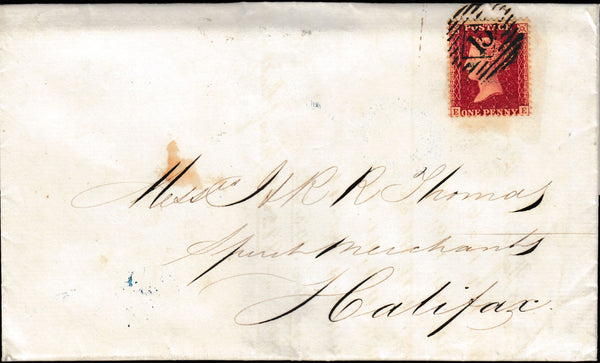 POSTAGE
13
E ONE PENNY E
Mess.rs H & R R Thomas
Spirit Merchants
Halifax